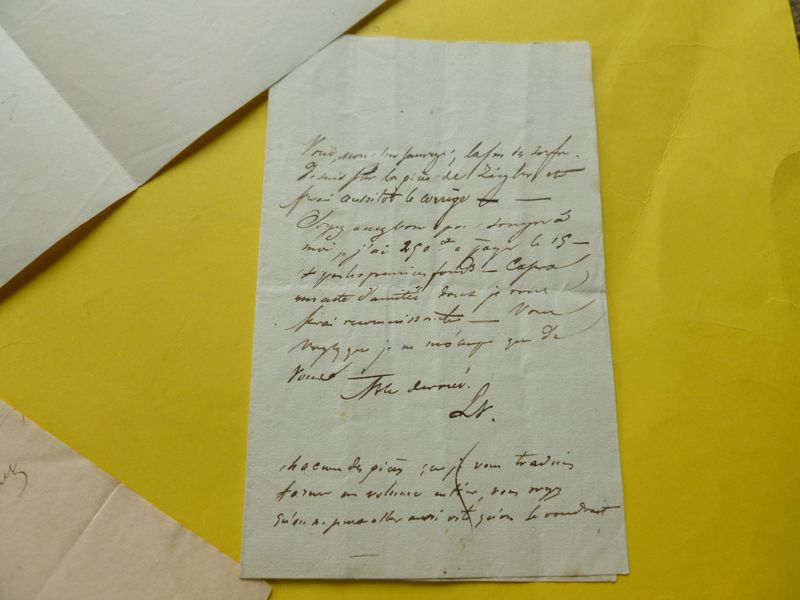 Voici, mon cher Sauvage, la fin de
les pièces de Ziegler et
serai aussitôt le corrigé —
Soyez assez bon pour songer à
moi, j'ai 250 à payer le 15 —
+ par les premiers fonds — Ce sera
un acte d'amitié dont je vous
serai reconnaissante — Vous
voyez que je ne m'occupe que de
vous
Votre dévoué.
chacune des pièces que je vous traduis
forme un volume entier, vous voyez
qu'on ne peut aller aussi vite qu'on le voudrait